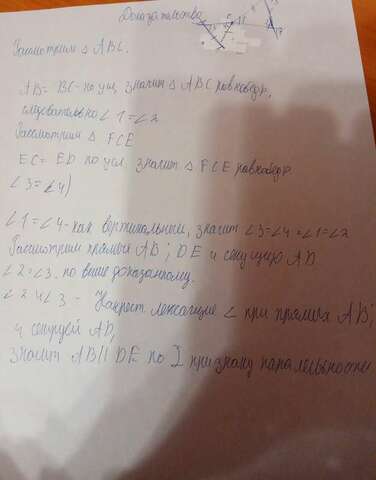 Доказательство
Рассмотрим △ ABC.
AB = BC - по усл, значит △ ABC равнобедр,
следовательно ∠ 1 = ∠ 2
Рассмотрим △ FCE
EC = ED по усл. значит △ FCE равнобедр.
∠ 3 = ∠ 4)
∠ 1 = ∠ 4 - как вертикальные, значит ∠ 3 = ∠ 4 = ∠ 1 = ∠ 2
Рассмотрим прямые AB ; DE и секущую AD
∠ 2 = ∠ 3. по выше доказанному.
∠ 2 и ∠ 3 = Накрест лежащие ∠ при прямых AB ;
и секущей AD,
значит AB || DE по I признаку паралельности